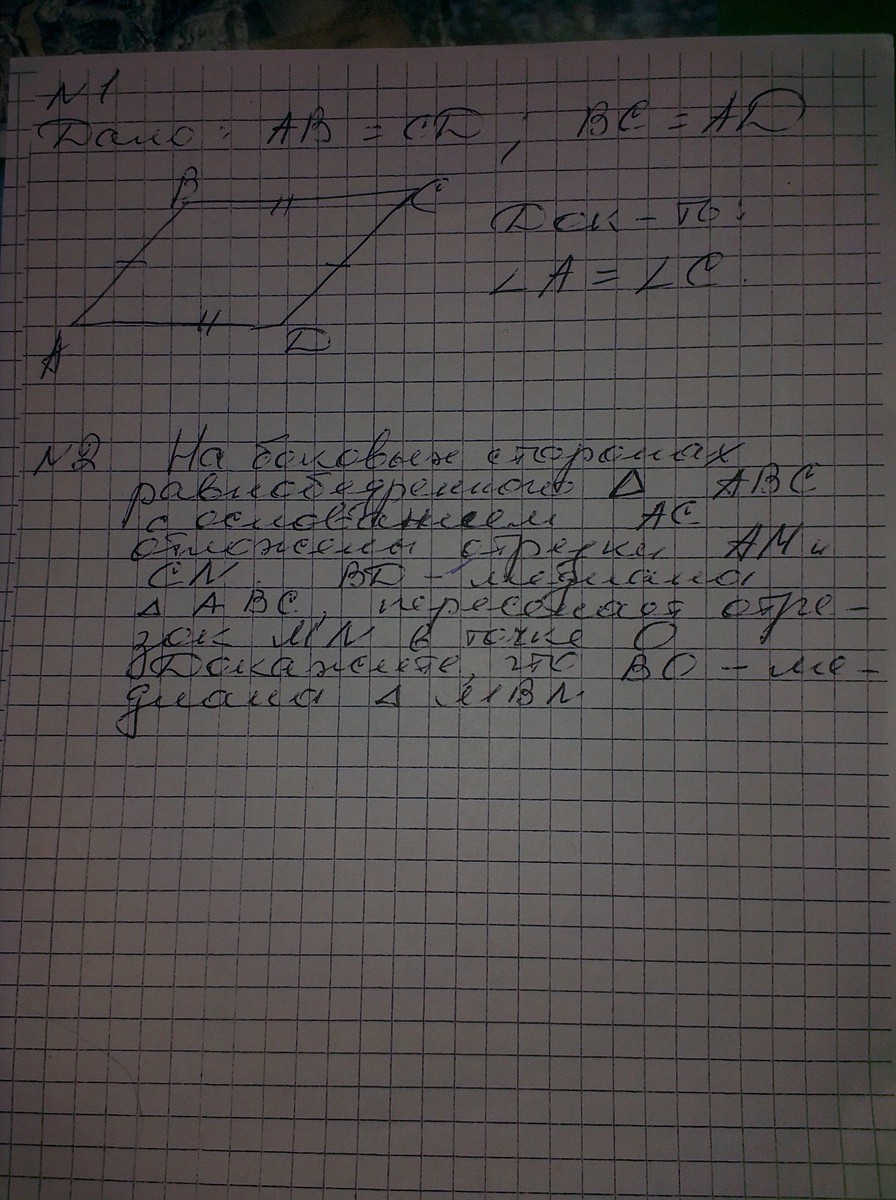 N1
Дано: AB = CD; BC = AD
B
C
Док-ть:
∠A = ∠C.
A
D
N2 На боковых сторонах
равнобедренного Δ ABC
с основанием AC
отложены отрезки AM и
CN. BD – медиана
Δ ABC, пересекает отре-
зок MN в точке O
Докажите, что BO – ме-
диана Δ MBN